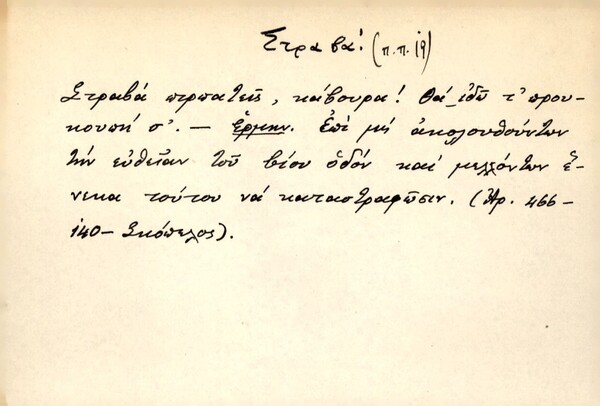 Στραβά! (π.π. 19)
Στραβά πιρπατεῖς, κάβουρα! Θά ἰδῶ τ' πρου-
κουπή σ'. — Ἑρμην. Ἐπί μή ἀκολουθούντων
τήν εὐθεῖαν τοῦ βίου ὁδόν καί μελλόντων ἕ-
νεκα τούτου νά καταστραφῶσιν. (Ἀρ. 466-
140- Σκόπελος).